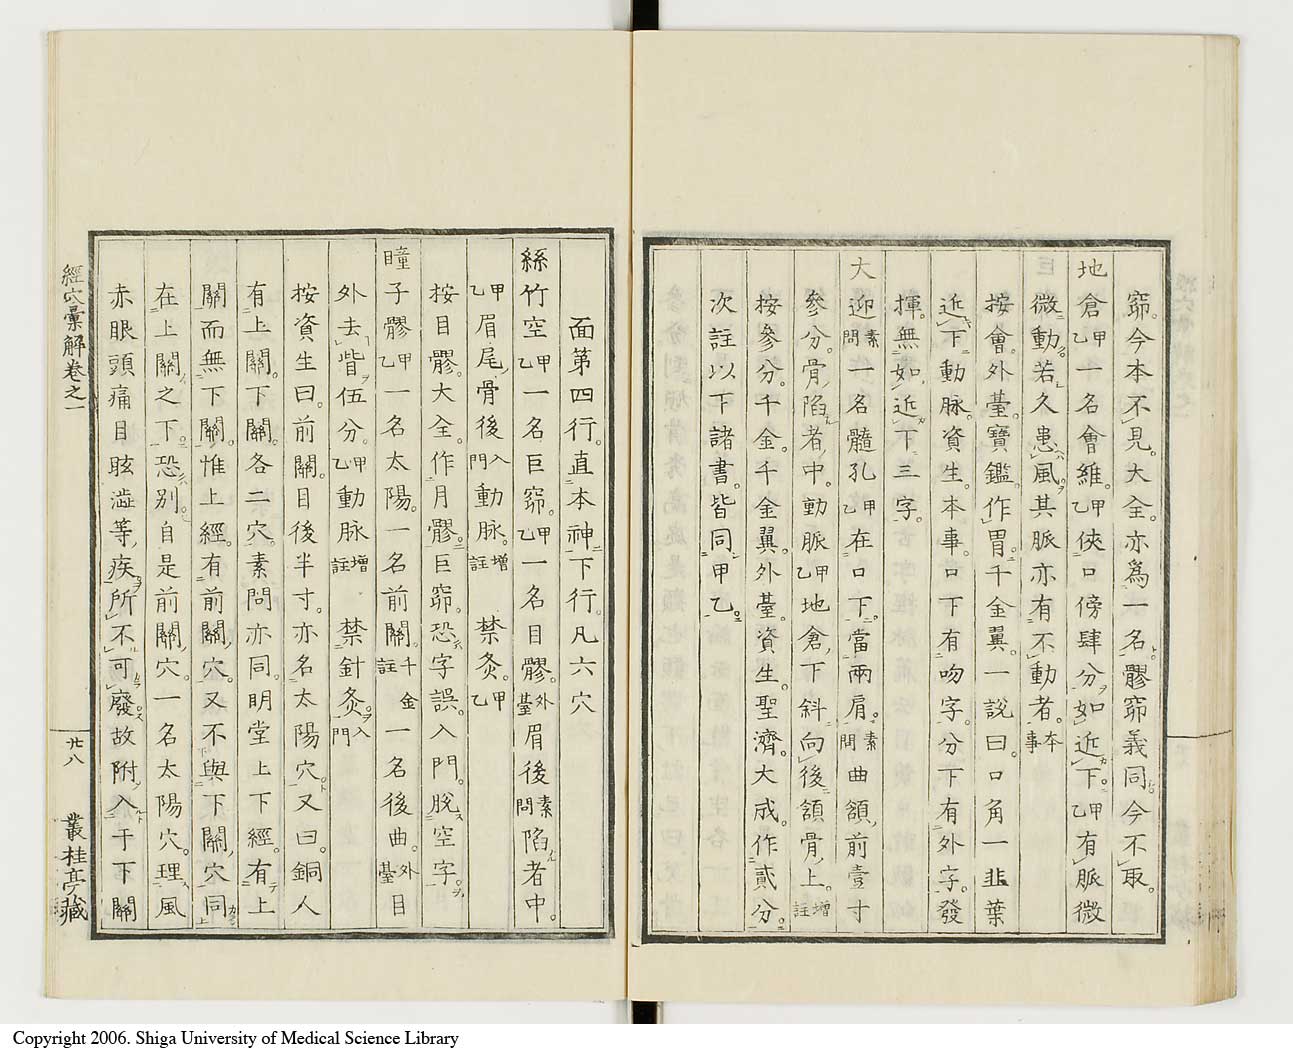 窌。今本不見。大全。亦爲一名髎窌義同。今不取。
地倉甲乙一名會維。甲乙俠口傍肆分。如近下。甲乙有脈微
微動。若久患風。其脈亦有不動者。本事
按會。外臺。寶鑑。作胃。千金翼。一說曰。口角一韭葉
近下動脉。資生。本事。口下有吻字。分下有外字。發
揮。無如近下三字。
大迎素問一名髓孔甲乙在口下。當兩肩。素問曲頷前壹寸
參分。骨陷者中。動脈甲乙地倉下斜向後頷骨上。增註
按參分。千金。千金翼。外臺。資生。聖濟。大成。作貳分。
次註以下諸書。皆同甲乙。
面第四行。直本神下行。凡六穴
絲竹空甲乙一名巨窌。甲乙一名目髎。外臺眉後素問陷者中。
甲乙眉尾骨後入門動脉。增註 禁灸。甲乙
按目髎。大全。作月髎。巨窌。恐字誤。入門。脫空字。
瞳子髎甲乙一名太陽。一名前關。千金註一名後曲。外臺目
外去眥伍分。甲乙動脉增註 禁針灸。入門
按資生曰。前關。目後半寸。亦名太陽穴。又曰。銅人
有上關。下關。各二穴。素問亦同。明堂上下經。有上
關而無下關。惟上經。有前關穴。又不與下關穴同
在上關之下。恐別。自是前關穴。一名太陽穴。理風
赤眼頭痛目眩澁等疾。所不可廢。故附入于下關
經穴彙解卷之一
廿八
叢桂亭藏
Copyright 2006. Shiga University of Medical Science Library